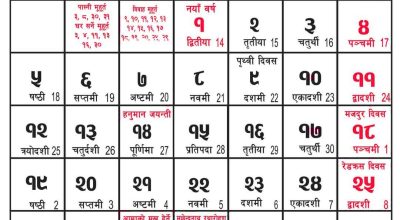 पास्नी मुहूर्त विवाह मुहूर्त नयाँ वर्ष
३, ८, ३०, ३१
घर सर्ने मुहूर्त
३, ४, ११, १३
१६, ३०
१ २ ३ ४
द्वितीया 14 तृतीया 15 चतुर्थी 16 पञ्चमी 17
पृथ्वी दिवस
५ ६ ७ ८ ९ १० ११
षष्ठी 18 सप्तमी 19 अष्टमी 20 नवमी 21 दशमी 22 एकादशी 23 द्वादशी 24
हनुमान जयन्ती मजदुर दिवस
१२ १३ १४ १५ १६ १७ १८
त्रयोदशी 25 चतुर्दशी 26 पूर्णिमा 27 प्रतिपदा 28 तृतीया 29 चतुर्थी 30 पञ्चमी 1
रेडक्रस दिवस
१९ २० २१ २२ २३ २४ २५
षष्ठी 2 सप्तमी 3 अष्टमी 4 नवमी 5 दशमी 6 एकादशी 7 द्वादशी 8